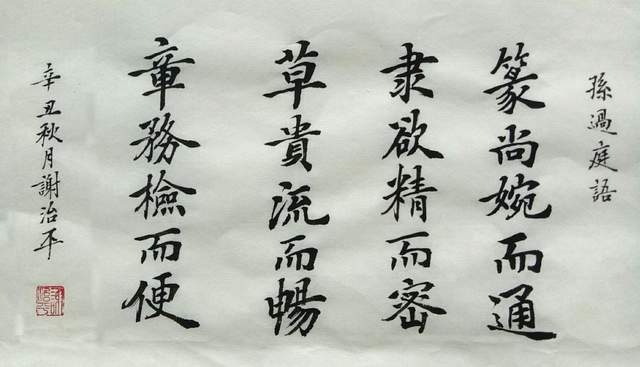 孫過庭語
篆尚婉而通
隶欲精而密
草貴流而暢
章務檢而便
辛丑秋月謝治平